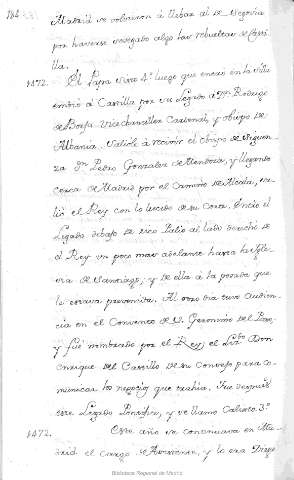 184
Madrid se volvieron á llebar al de Segovia
por haverse sosegado algo las rebueltas de Casti
lla.
1472. El Papa Sixto 4º luego que entró en la silla
embió á Castilla por su Legado á Dn. Rodrigo
de Borja Vicechanciller Cardenal, y obispo de
Albania. Salióle á recivir el obispo de Siguen
za Dn. Pedro Gonzalez de Mendoza, y llegando
cerca de Madrid por el Camino de Alcala, sa
lió el Rey con lo lucido de su Corte. Entró el
Legado debajo de rico Palio al lado derecho de
el Rey un poco mas adelante hasta la Igle
sia de Santiago; y de ella á la posada que
le estava prevenida. Al otro dia tuvo Audien
cia en el Convento de S. Geronimo del Paso,
y fué nombrado por el Rey el Lizdo Don
Enrique del Castillo de su Consejo para co
municar los negocios que trahia. Fue despues
este Legado Pontifice, y se llamó Calixto 3º
1472. Este año se continuava en Ma
drid el cargo de, y lo era Diego
Biblioteca Regional de Murcia